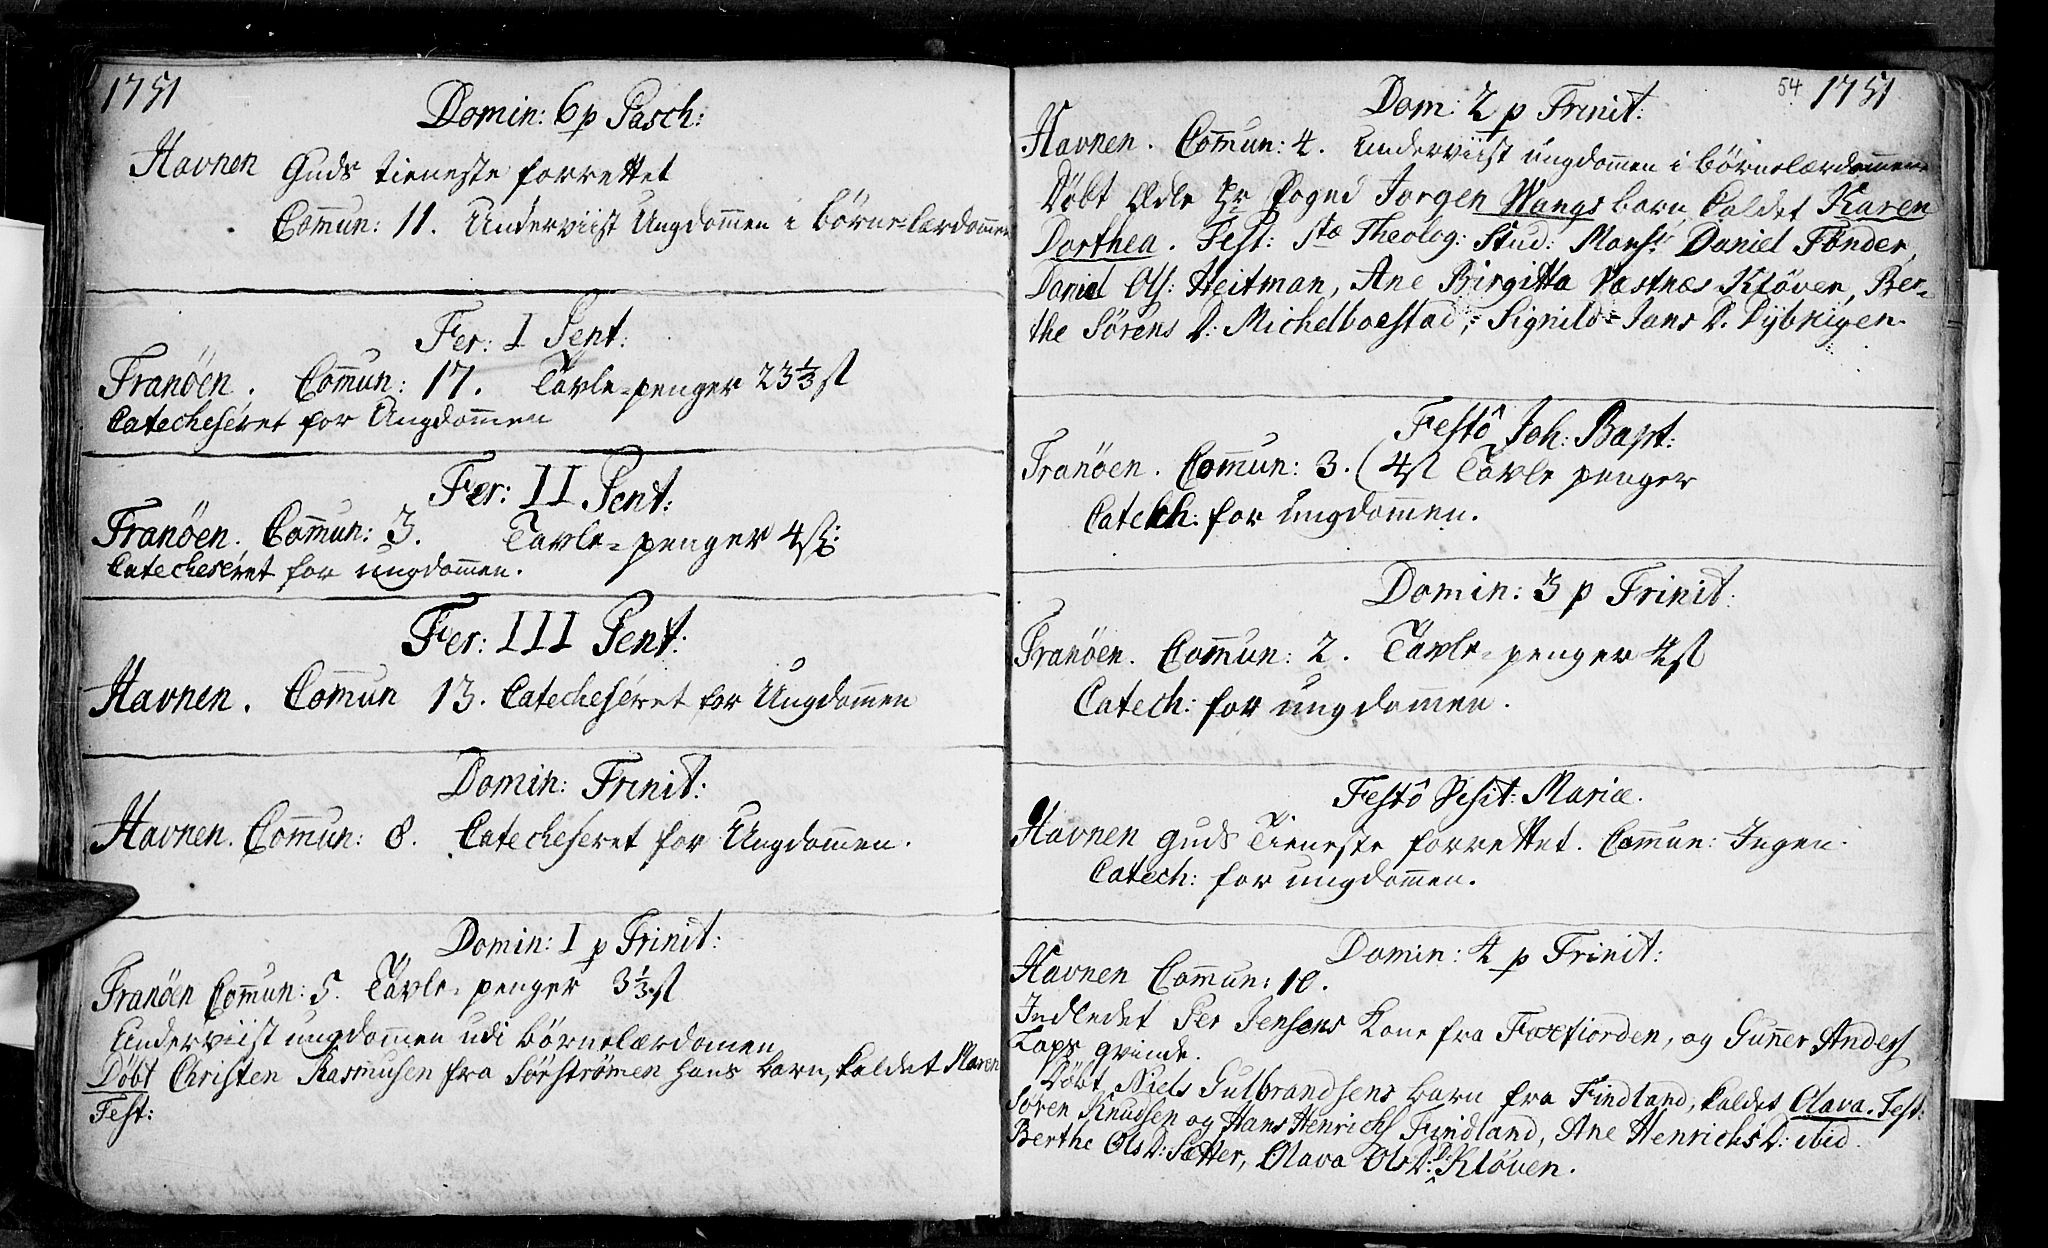 1751
Domin: 6 p Pasch:
Havnen Guds tieneste forrettet
Com̄un: 11. Underviist Ungdom̄en i börne-lærdom̄en
Fer: I Pent:
Tranöen. Com̄un: 17. Tavle-penger 23⅓ ß
Catecheseret for Ungdom̄en
Fer: II Pent:
Tranöen. Com̄un: 3. Tavle-penger 4 ß:
Catecheseret for ungdom̄en.
Fer: III Pent:
Havnen. Com̄un 13. Catecheseret for Ungdom̄en
Domin: Trinit:
Havnen. Com̄un: 8. Catecheseret for Ungdom̄en.
Domin: I p Trinit:
Tranöen Com̄un: 5. Tavle-penger 3⅓ ß
Underviist ungdom̄en udi börnelærdomen
Döbt Christen Rasmusen fra Sörströmen hans barn, kaldet Maren
Test:
54 1751
Dom: 2 p Trinit:
Havnen. Com̄un: 4. Underviist ungdom̄en i börnelærdom̄en
Döbt Ædle Hr Fogud Jorgen Wangs barn, kaldet Karen
Dorthea. Test: Stæ Theolog: Stud: Monsr Daniel Tönder,
Daniel Ols: Heitman, Ane Birgitta Vastnæs Klöven, Ber-
the Sörens D: Michelboestad, Signild Jans D. Dybvigen.
Festô Joh: Bapt:
Tranöen. Com̄un: 3. (4 ß Tavle penger
Catech: for ungdom̄en.
Domin: 3 p Trinit:
Tranöen. Com̄un: 2. Tavle-penger 4 ß
Catech: for ungdom̄en.
Festô Visit: Mariæ.
Havnen Guds Tieneste forrettet. Com̄un: Ingen.
Catech: for ungdom̄en.
Domin: 4 p Trinit:
Havnen Com̄un: 10.
Indledet Per Jensens kone fra Faxefiorden, og Gun̄er Anders
Laps qvinde.
Döbt Niels Gulbrandsens barn fra Findland, kaldet Olava. Test:
Sören Knudsen og Hans Henrichs Findland, Ane Henrichs D: ibid.
Berthe Ols D: Sætter, Olava Ols D: Klöven.